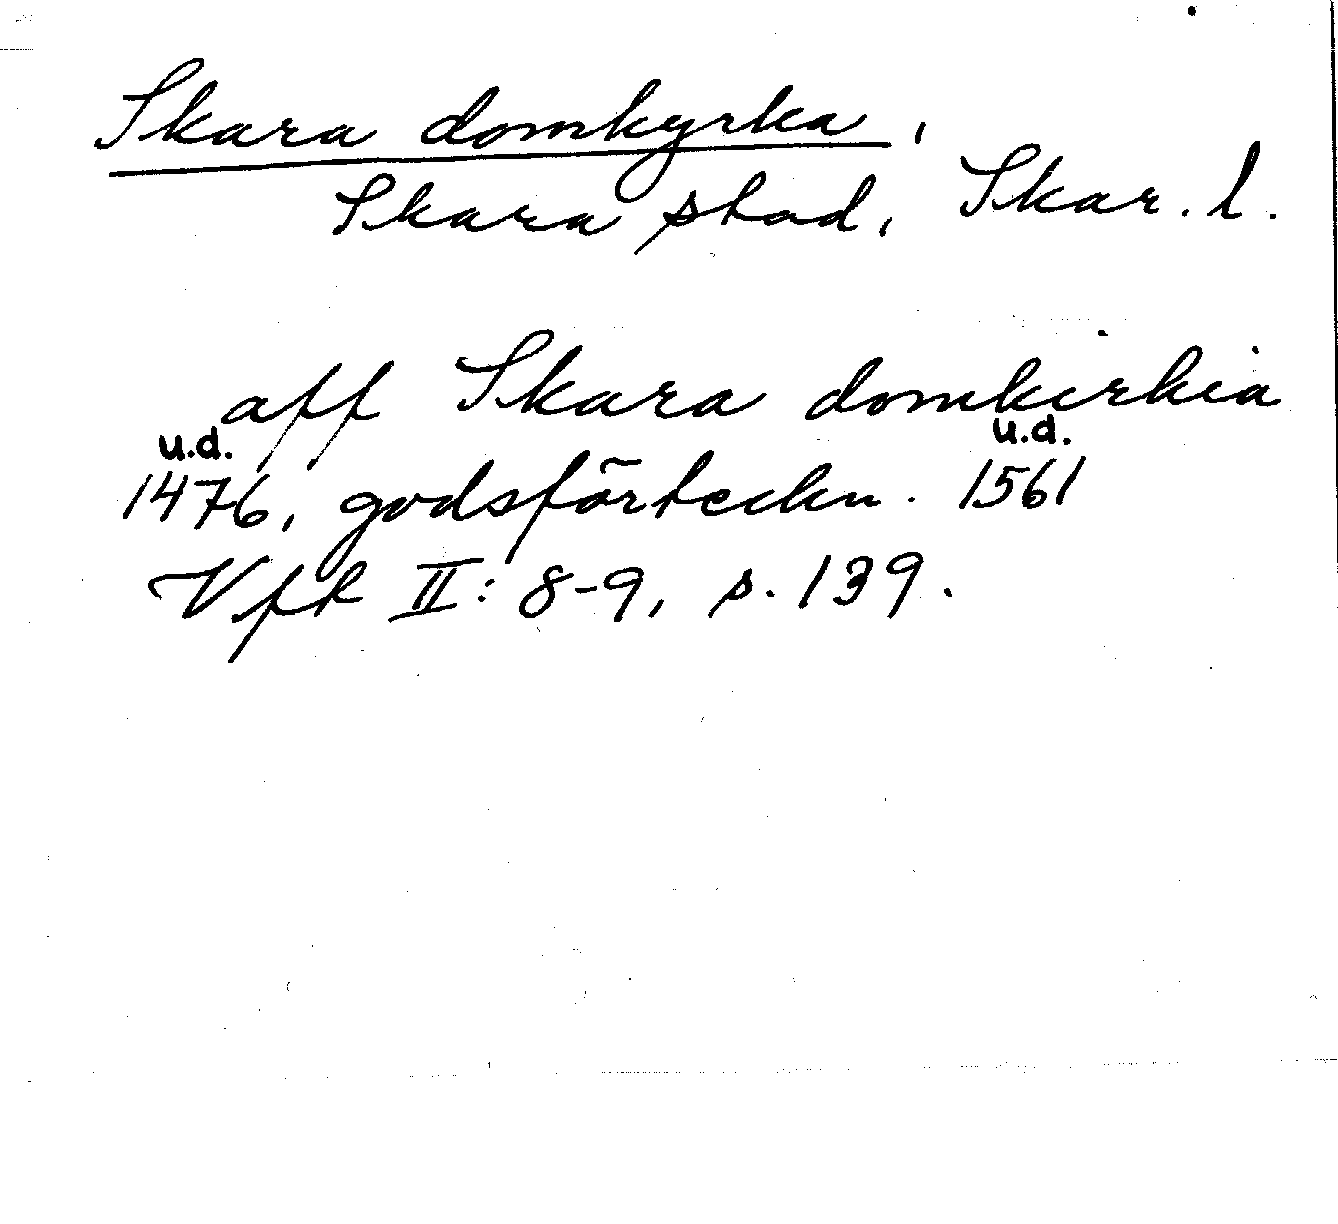 Skara domkyrka,
Skara stad, Skar. l.
aff Skara domkirkia
u.d. u.d.
1476, godsförteckn. 1561
Vfk II: 8-9, s. 139.